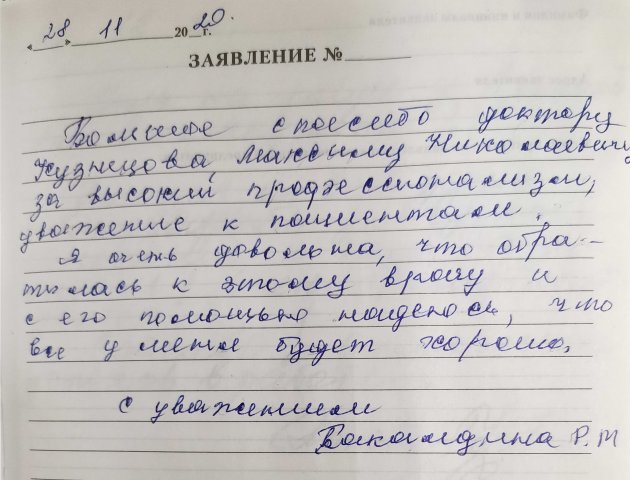 «28» 11 2020 г.
ЗАЯВЛЕНИЕ №
Большое спасибо доктору
Кузнецова, Максиму Николаевичу
за высокий профессионализм,
уважение к пациентам.
Я очень довольна, что обра-
тилась к этому врачу и
с его помощью надеюсь, что
все у меня будет хорошо.
С уважением
Р. М